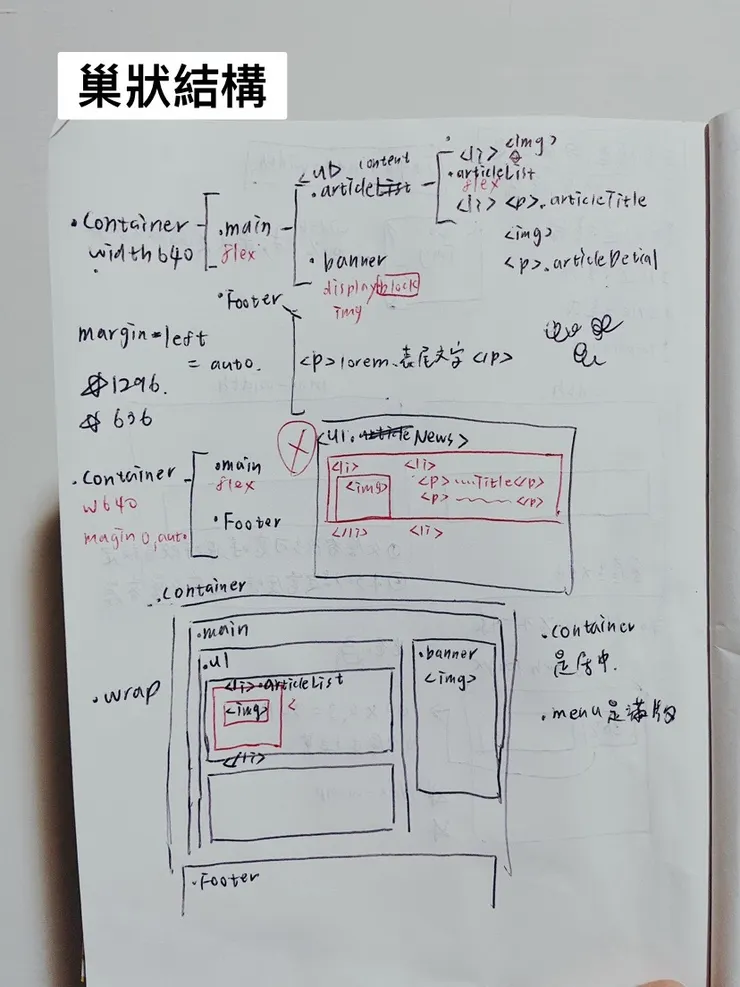 巢狀結構
<ul> content
.article
<li> <img>
.articleList
flex
<li> <p>.articleTitle
<img>
<p>.articleDetial
.container
width640
.main
flex
.banner
display block
img
.Footer
margin=left
= auto.
1296.
636
<p>lorem.表尾文字</p>
X
<ul.News>
<li> <li>
<img> <p>....Title</p>
<p>~~~~</p>
</li> <li>
.container
w640
magin 0,auto
.main
flex
.Footer
.container
.main
.ul
<li>.articleList
<img> <
</li>
.banner
<img>
.wrap
.container
是居中.
.menu是滿版
.Footer